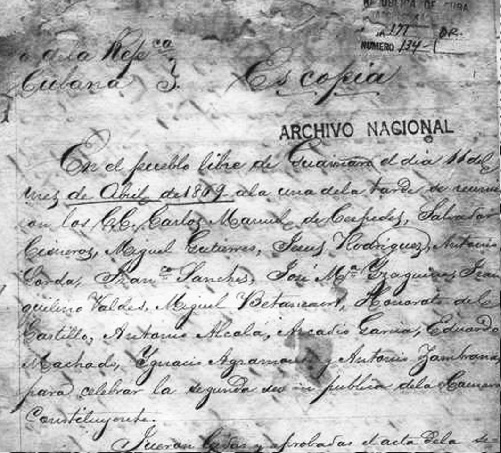 REPUBLICA DE CUBA
177 DR.
NUMERO 134-1
a de la Repca
Cubana
Es copia
ARCHIVO NACIONAL
En el pueblo libre de Guaimaro el dia 11 del
mes de Abril de 1869 a la una de la tarde se reunie
ron los C.C. Carlos Manuel de Cespedes, Salvador
Cisneros, Miguel Gutierres, Jesus Rodriguez, Antonio
Lorda, Franco Sanches, José Ma Yzaguirre, Tran
quilino Valdes, Miguel Betancourt, Honorato del
Castillo, Antonio Alcala, Arcadio Garcia, Eduardo
Machado, Ygnacio Agramonte, Antonio Zambrana
para celebrar la segunda publica de la Camara
Constituyente.
Fueron leidas y aprobadas el acta de la se